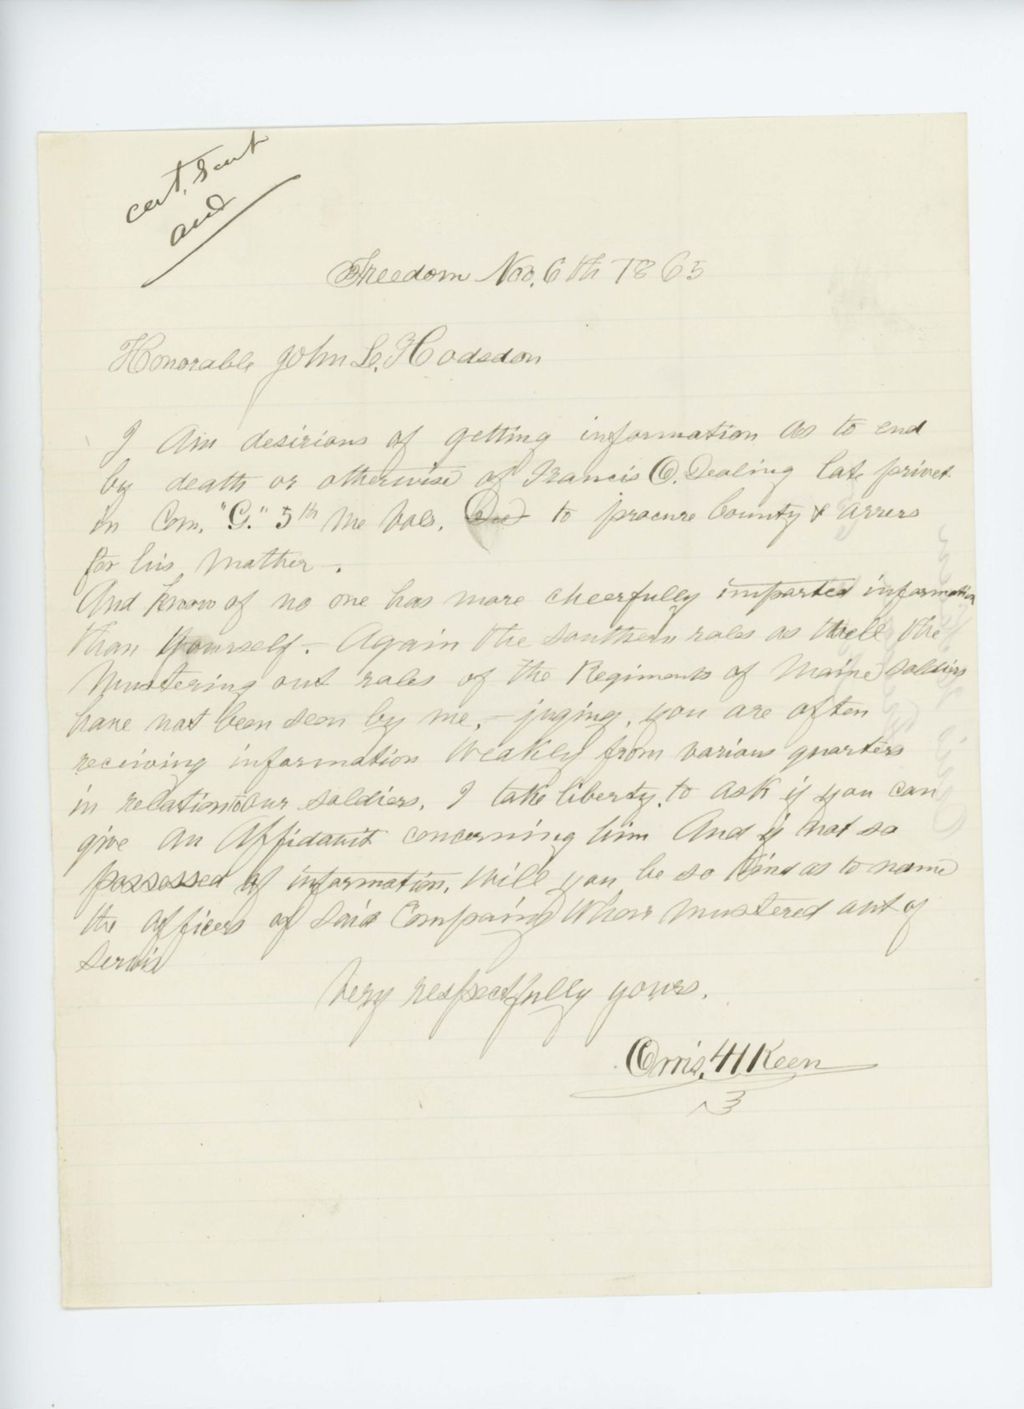 cert, sent
and
Freedom Nov, 6th 1865
Honorable John L, Hodsdon
I Am desirious of getting information as to end
by death or otherwise of Francis O. Dealing late privet
in Com, "G." 5th Me Vols, to procure bounty & arrers
for his mother.
And know of no one has more cheerfully imparted information
than yourself. - Again the southern roles as well the
Mustering out roles of the Regiments of Maine soldiers
have not been seen by me, - juging, you are often
receiving information weakly from various quarters
in relation to our soldiers, I take liberty, to ask if you can
give An Affidavit concerning him And if not so
possessed of information, will you be so kind as to name
the officers of said Company whoir mustered out of
servis
Very respectfully yours.
Orris, H Keen